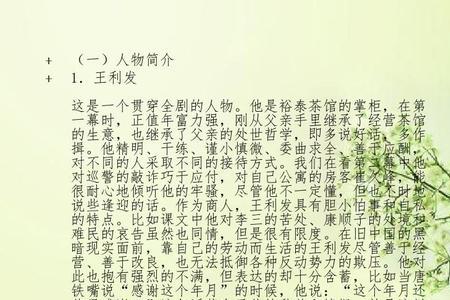 + （一）人物简介
+ 1．王利发
这是一个贯穿全剧的人物。他是裕泰茶馆的掌柜，在第
一幕时，正值年富力强，刚从父亲手里继承了经营茶馆
的生意，也继承了父亲的处世哲学，即多说好话，多作
揖。他精明、干练、谨小慎微、委曲求全、善于应酬，
对不同的人采取不同的接待方式。我们在看第二幕中他
对巡警的敲诈巧于应付，对自己公寓的房客崔久峰，能
很耐心地倾听他的牢骚，尽管他不一定懂，但也不时地
说些逢迎的话。作为商人，王利发具有胆小怕事和自私
的特点。比如课文中他对李三的苦处、康顺子的处境和
难民的哀告虽然也同情，但是很有限度。在旧中国的黑
暗现实面前，靠自己的劳动而生活的王利发尽管善于经
营，善于改良，也无法抵御各种反动势力的欺压。他对
此也抱有强烈的不满，但表达的却十分含蓄，比如当唐
铁嘴说“感谢这个年月”的时候，他说：“这个年月还